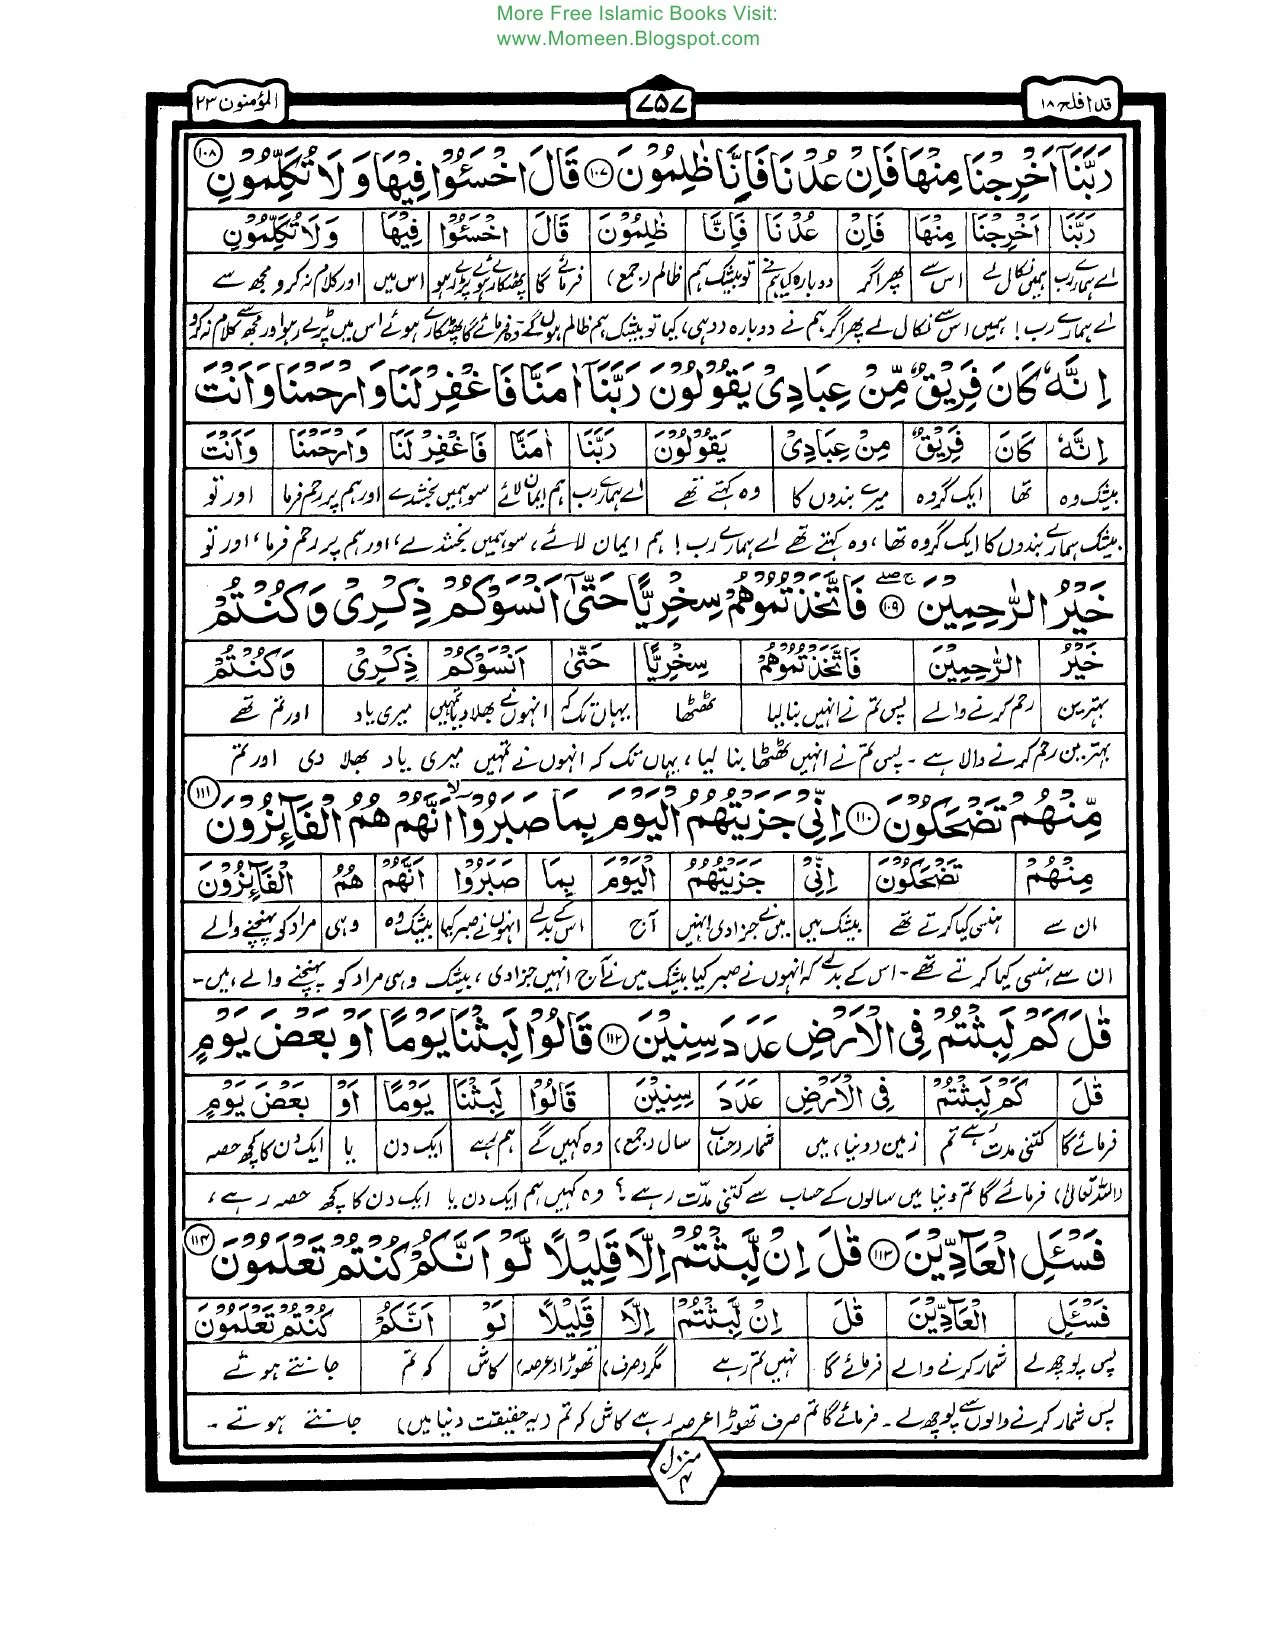 More Free Islamic Books Visit:
www.Momeen.Blogspot.com
قد افلح ۱۸
۷۵۷
المؤمنون ۲۳
رَبَّنَآ اَخْرِجْنَا مِنْهَا فَاِنْ عُدْنَا فَاِنَّا ظٰلِمُوْنَ ۱۰۷ قَالَ اخْسَئُوْا فِيْهَا وَلَا تُكَلِّمُوْنِ ۱۰۸
رَبَّنَا اَخْرِجْنَا مِنْهَا فَاِنْ عُدْنَا فَاِنَّا ظٰلِمُوْنَ قَالَ اخْسَئُوْا فِيْهَا وَلَا تُكَلِّمُوْنِ
اے ہمارے رب ہمیں نکال لے اس سے پھر اگر دوبارہ کیا ہم نے تو بیشک ہم ظالم (جمع) فرمائے گا پھٹکارے ہوئے پڑے رہو اس میں اور کلام نہ کرو مجھ سے
اے ہمارے رب! ہمیں اس سے نکال لے پھر اگر ہم نے دوبارہ (وہی) کیا تو بیشک ہم ظالم ہوں گے۔ وہ فرمائے گا پھٹکارے ہوئے اس میں پڑے رہو اور مجھ سے کلام نہ کرو
اِنَّهٗ كَانَ فَرِيْقٌ مِّنْ عِبَادِيْ يَقُوْلُوْنَ رَبَّنَآ اٰمَنَّا فَاغْفِرْ لَنَا وَارْحَمْنَا وَاَنْتَ
اِنَّهٗ كَانَ فَرِيْقٌ مِنْ عِبَادِيْ يَقُوْلُوْنَ رَبَّنَا اٰمَنَّا فَاغْفِرْ لَنَا وَارْحَمْنَا وَاَنْتَ
بیشک وہ تھا ایک گروہ میرے بندوں کا وہ کہتے تھے اے ہمارے رب ہم ایمان لائے سو ہمیں بخشدے اور ہم پر رحم فرما اور تو
بیشک ہمارے بندوں کا ایک گروہ تھا، وہ کہتے تھے اے ہمارے رب! ہم ایمان لائے، سو ہمیں بخشدے، اور ہم پر رحم فرما، اور تو
خَيْرُ الرّٰحِمِيْنَ ۱۰۹ فَاتَّخَذْتُمُوْهُمْ سِخْرِيًّا حَتّٰٓى اَنْسَوْكُمْ ذِكْرِيْ وَكُنْتُمْ
خَيْرُ الرّٰحِمِيْنَ فَاتَّخَذْتُمُوْهُمْ سِخْرِيًّا حَتّٰى اَنْسَوْكُمْ ذِكْرِيْ وَكُنْتُمْ
بہترین رحم کرنے والے پس تم نے انہیں بنا لیا ٹھٹھا یہاں تک کہ انہوں نے بھلا دیا تمہیں میری یاد اور تم تھے
بہترین رحم کرنے والا ہے۔ پس تم نے انہیں ٹھٹھا بنا لیا، یہاں تک کہ انہوں نے تمہیں میری یاد بھلا دی اور تم
مِّنْهُمْ تَضْحَكُوْنَ ۱۱۰ اِنِّيْ جَزَيْتُهُمُ الْيَوْمَ بِمَا صَبَرُوْٓا اَنَّهُمْ هُمُ الْفَآئِزُوْنَ ۱۱۱
مِنْهُمْ تَضْحَكُوْنَ اِنِّيْ جَزَيْتُهُمْ الْيَوْمَ بِمَا صَبَرُوْا اَنَّهُمْ هُمُ الْفَآئِزُوْنَ
ان سے ہنسی کیا کرتے تھے بیشک میں میں نے جزا دی انہیں آج اس کے بدلے انہوں نے صبر کیا بیشک وہ وہی مراد کو پہنچنے والے
ان سے ہنسی کیا کرتے تھے۔ اس کے بدلے کہ انہوں نے صبر کیا بیشک میں نے آج انہیں جزا دی، بیشک وہی مراد کو پہنچنے والے ہیں۔
قٰلَ كَمْ لَبِثْتُمْ فِي الْاَرْضِ عَدَدَ سِنِيْنَ ۱۱۲ قَالُوْا لَبِثْنَا يَوْمًا اَوْ بَعْضَ يَوْمٍ
قٰلَ كَمْ لَبِثْتُمْ فِي الْاَرْضِ عَدَدَ سِنِيْنَ قَالُوْا لَبِثْنَا يَوْمًا اَوْ بَعْضَ يَوْمٍ
فرمائے گا کتنی مدت رہے تم زمین (دنیا) میں شمار (حساب) سال (جمع) وہ کہیں گے ہم رہے ایک دن یا ایک دن کا کچھ حصہ
(اللہ تعالیٰ) فرمائے گا تم دنیا میں سالوں کے حساب سے کتنی مدّت رہے؟ وہ کہیں ہم ایک دن یا ایک دن کا کچھ حصہ رہے،
فَسْئَلِ الْعَآدِّيْنَ ۱۱۳ قٰلَ اِنْ لَّبِثْتُمْ اِلَّا قَلِيْلًا لَّوْ اَنَّكُمْ كُنْتُمْ تَعْلَمُوْنَ ۱۱۴
فَسْئَلِ الْعَآدِّيْنَ قٰلَ اِنْ لَّبِثْتُمْ اِلَّا قَلِيْلًا لَوْ اَنَّكُمْ كُنْتُمْ تَعْلَمُوْنَ
پس پوچھ لے شمار کرنے والے فرمائے گا نہیں تم رہے مگر (صرف) تھوڑا (عرصہ) کاش کہ تم جانتے ہوتے
پس شمار کرنے والوں سے پوچھ لے۔ فرمائے گا تم صرف تھوڑا عرصہ رہے کاش کہ تم (یہ حقیقت دنیا میں) جانتے ہوتے۔
منزل ۴